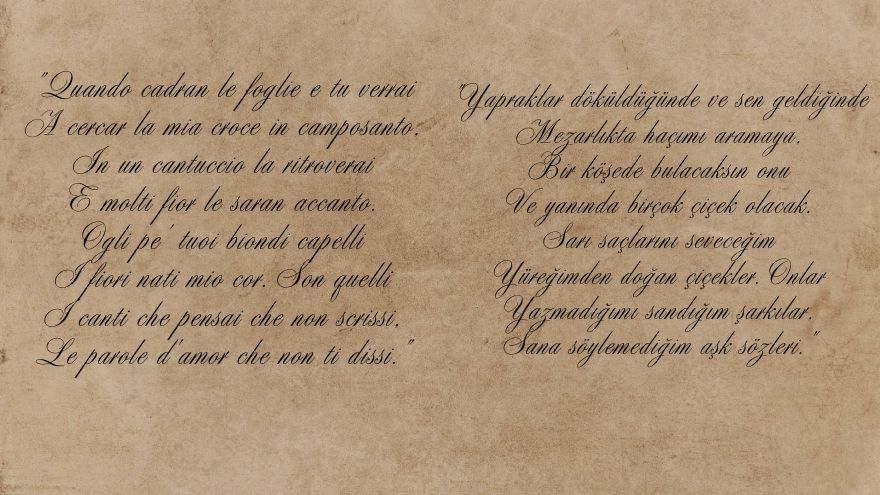 "Quando cadran le foglie e tu verrai
A cercar la mia croce in camposanto,
In un cantuccio la ritroverai
E molti fior le saran accanto.
Ogli pe' tuoi biondi capelli
I fiori nati mio cor. Son quelli
I canti che pensai che non scrissi,
Le parole d'amor che non ti dissi."
"Yapraklar döküldüğünde ve sen geldiğinde
Mezarlıkta haçımı aramaya,
Bir köşede bulacaksın onu
Ve yanında birçok çiçek olacak.
Sarı saçlarını seveceğim
Yüreğimden doğan çiçekler. Onlar
Yazmadığımı sandığım şarkılar,
Sana söylemediğim aşk sözleri."